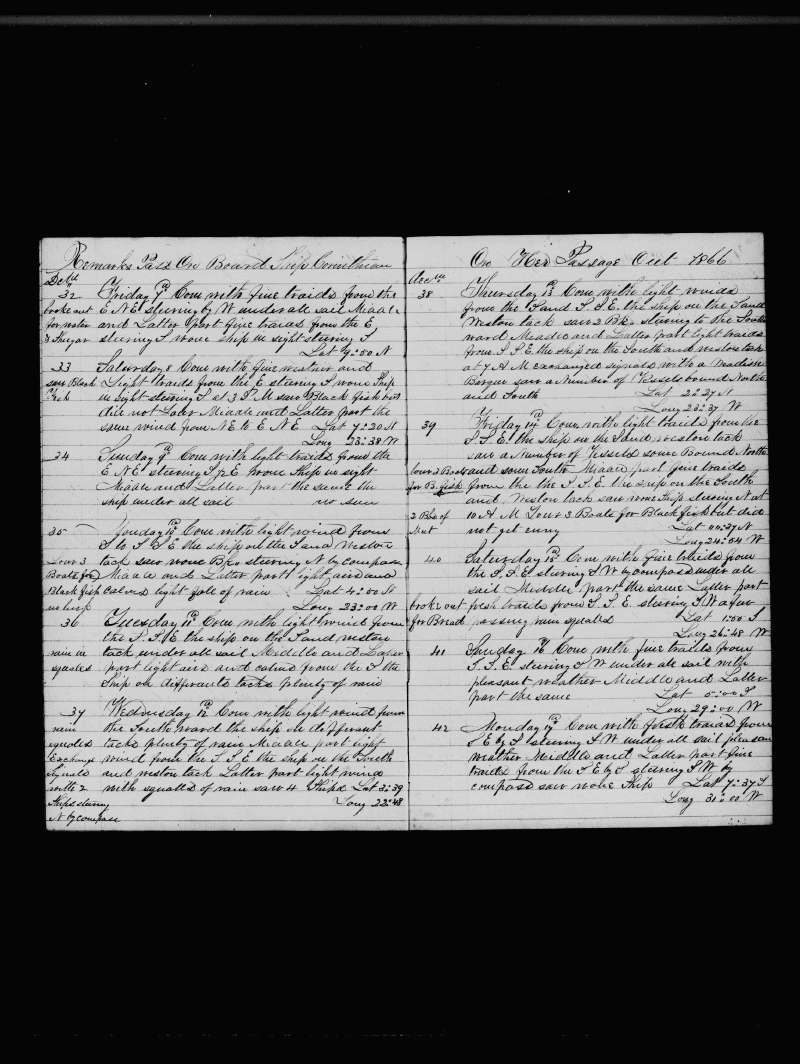 Remarks Pass On Board Ship Corinthian
32 Friday 7th Com with fine traids from the
broke out E N E steering by W under all sail Middle
for water and Latter part fine traids from the E
& Shugar steering S one ship in sight steering S
Lat 9:00 N
33 Saturday 8 Com with fine weather and
saw Black Light traits from the E steering S one Ship
Fish in sight steering S at 3 P M saw Black fish but
did not Lower Middle and Latter part the
same wind from NE to E N E Lat 7:20 N
Long 23:38 W
34 Sunday 9th Com with light traids from the
E N E steering S 1/2 E one Ship in sight
Middle and Latter part the same the
ship under all sail no sun
35 Monday 10th Com with light wind from
S to S S E the ship on the S and Weston
Lour 3 tack saw one Bk steering N by compass
Boats for Middle and Latter part light airs and
Black fish calms light gale of rain Lat 4:00 N
Long 23:00 W
36 Tuesday 11th Com with light wind from
the S S E the ship on the S and weston
rain in tack under all sail Middle and Later
squales part light airs and calms from the S the
Ship on differants tacks plenty of rain
37 Wednesday 12th Com with light wind from
rain the South ward the ship on differant
squales tacks plenty of rain Middle part light
Exchange wind from the S S E the ship on the South
signals and weston tack Latter part light wind
with 2 with squalls of rain saw 4 Ships Lat 3:39
Ships steering Long 22:48
N by compass
On Her Passage Out 1866
38 Thursday 13 Com with light winds
from the S and S.S.E. the ship on the S and
Weston tack saw 2 Bks steering to the South
ward Meadle and Latter part light traids
from S S E the ship on the South and weston tack
at 7 A M exchanged signals with a
saw a Number of Vessels bound North
and South Lat 2:27 N
Long 23:37 W
39 Friday 14th Com with light traids from the
S.S.E. the ship on the S and weston tack
saw a Number of Vessels some Bound North
lour 3 Boats and some South Middle part fine traids
for B. fish from the the S.S.E. the ship on the South
and Weston tack saw one Ship steering N at
2 Bbs of 10 A M Lour 3 Boats for Black fish but did
Meat not get enny Lat 01:37 N
Long 24:04 W
40 Saturday 15th Com with fine traids from
the S.S.E steering S W by compass under all
sail Middle part the same Latter part
broke out fresh traids from S S.E. steering S.W a few
for Bread passing rain squales Lat 1:00 S
Long 26:48 W
41 Sunday 16 Com with fine traids from
S.S.E. steering S W under all sail with
pleasant weather Middle and Latter
part the same Lat 5:00 S
Long 29:00 W
42 Monday 17 Com with fresh traids from
S E by S steering S.W. under all sail pleasan
weather Middle and Latter part fine
traids from the S E by S steering S.W. by
compass saw one Ship Lat 7:37 S
Long 31:00 W